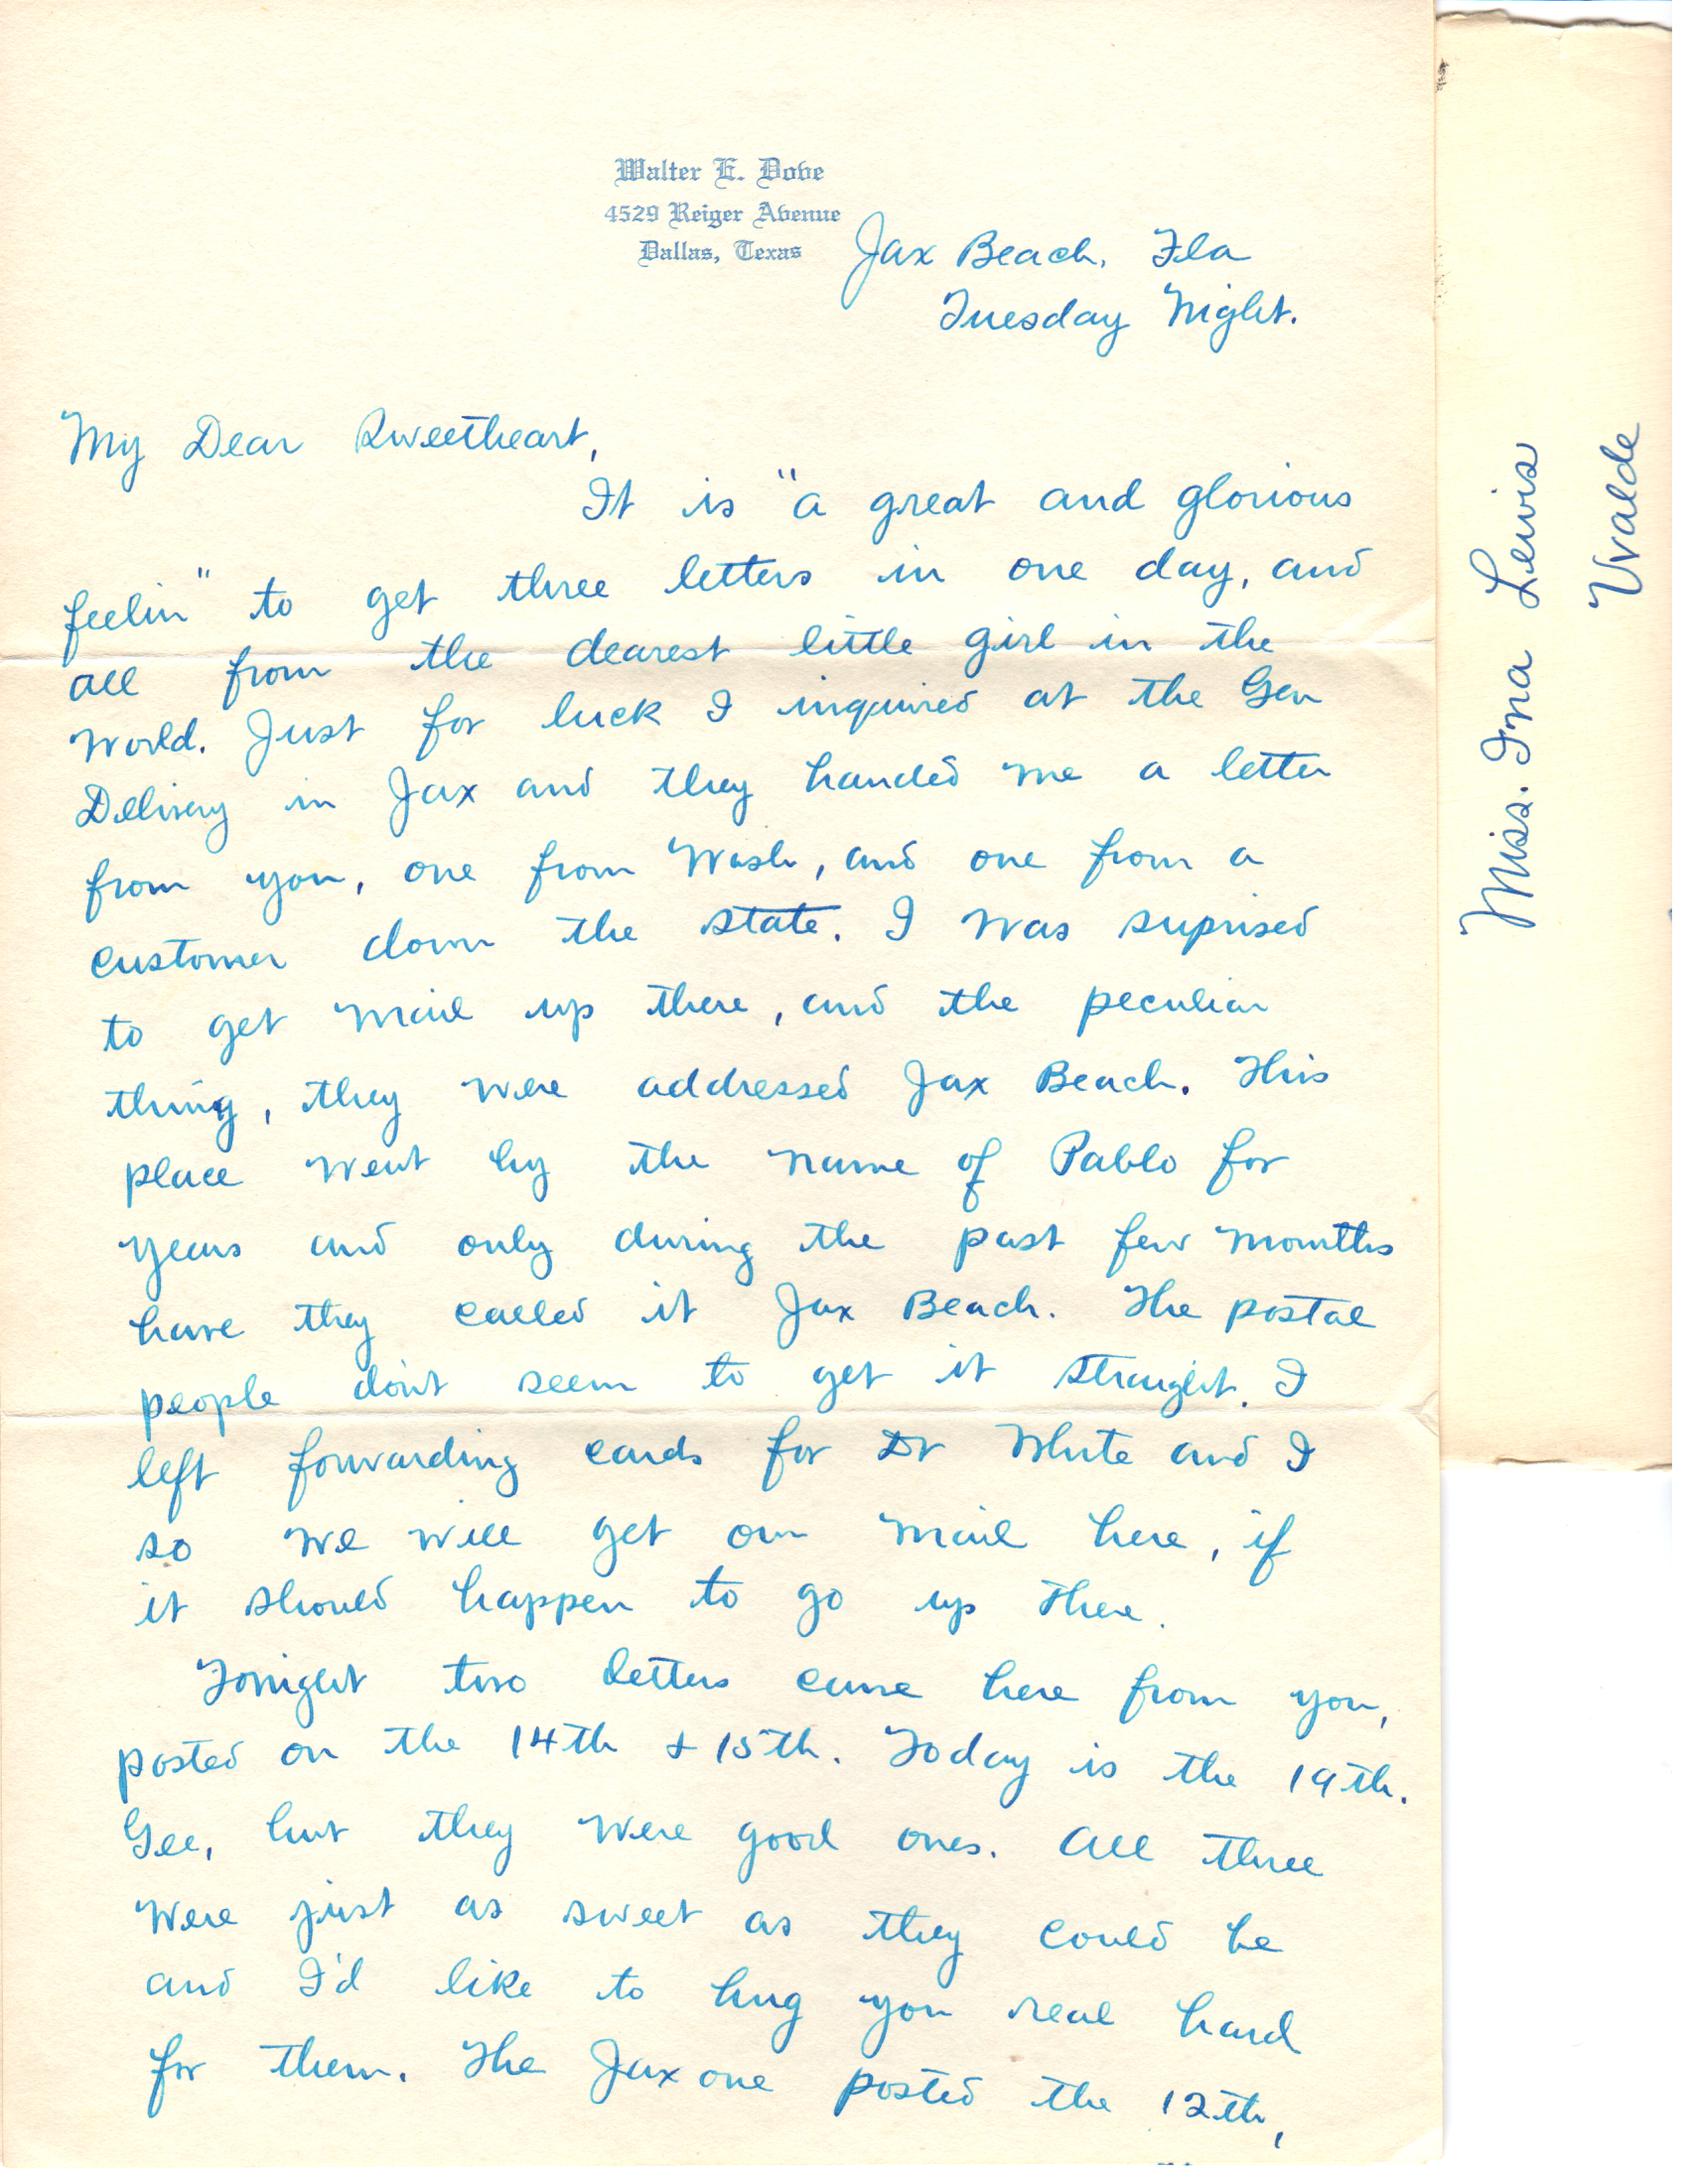 Walter E. Dove
4529 Reiger Avenue
Dallas, Texas
Jax Beach, Fla
Tuesday Night.
My Dear Sweetheart,
It is "a great and glorious
feelin" to get three letters in one day, and
all from the dearest little girl in the
World. Just for luck I inquired at the Gen
Delivery in Jax and they handed me a letter
from you, one from Wash, and one from a
customer down the state. I was suprised
to get mail up there, and the peculiar
thing, they were addressed Jax Beach. This
place went by the name of Pablo for
years and only during the past few months
have they called it Jax Beach. The postal
people don't seem to get it straight. I
left forwarding cards for Dr White and I
so we will get our mail here, if
it should happen to go up there.
Tonight two letters came here from you,
posted on the 14th & 15th. Today is the 19th.
Gee, but they were good ones. All three
were just as sweet as they could be
and I'd like to hug you real hard
for them. The Jax one posted the 12th,
Miss. Ina Lewis
Uvalde